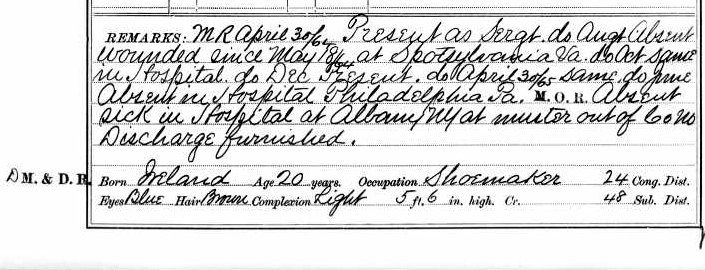 REMARKS: M R April 30/64 Present as Sergt. do Augt Absent
wounded since May 18/64 at Spotsylvania Va. do Oct same
in Hospital. do Dec Present. do April 30/65 same. do June
Absent in Hospital Philadelphia Pa. M. O. R. Absent
sick in Hospital at Albany NY at muster out of Co no
Discharge furnished.
D M. & D. R. Born Ireland Age 20 years. Occupation Shoemaker 24 Cong. Dist.
Eyes Blue Hair Brown Complexion Light 5 ft. 6 in. high. Cr. 48 Sub. Dist.